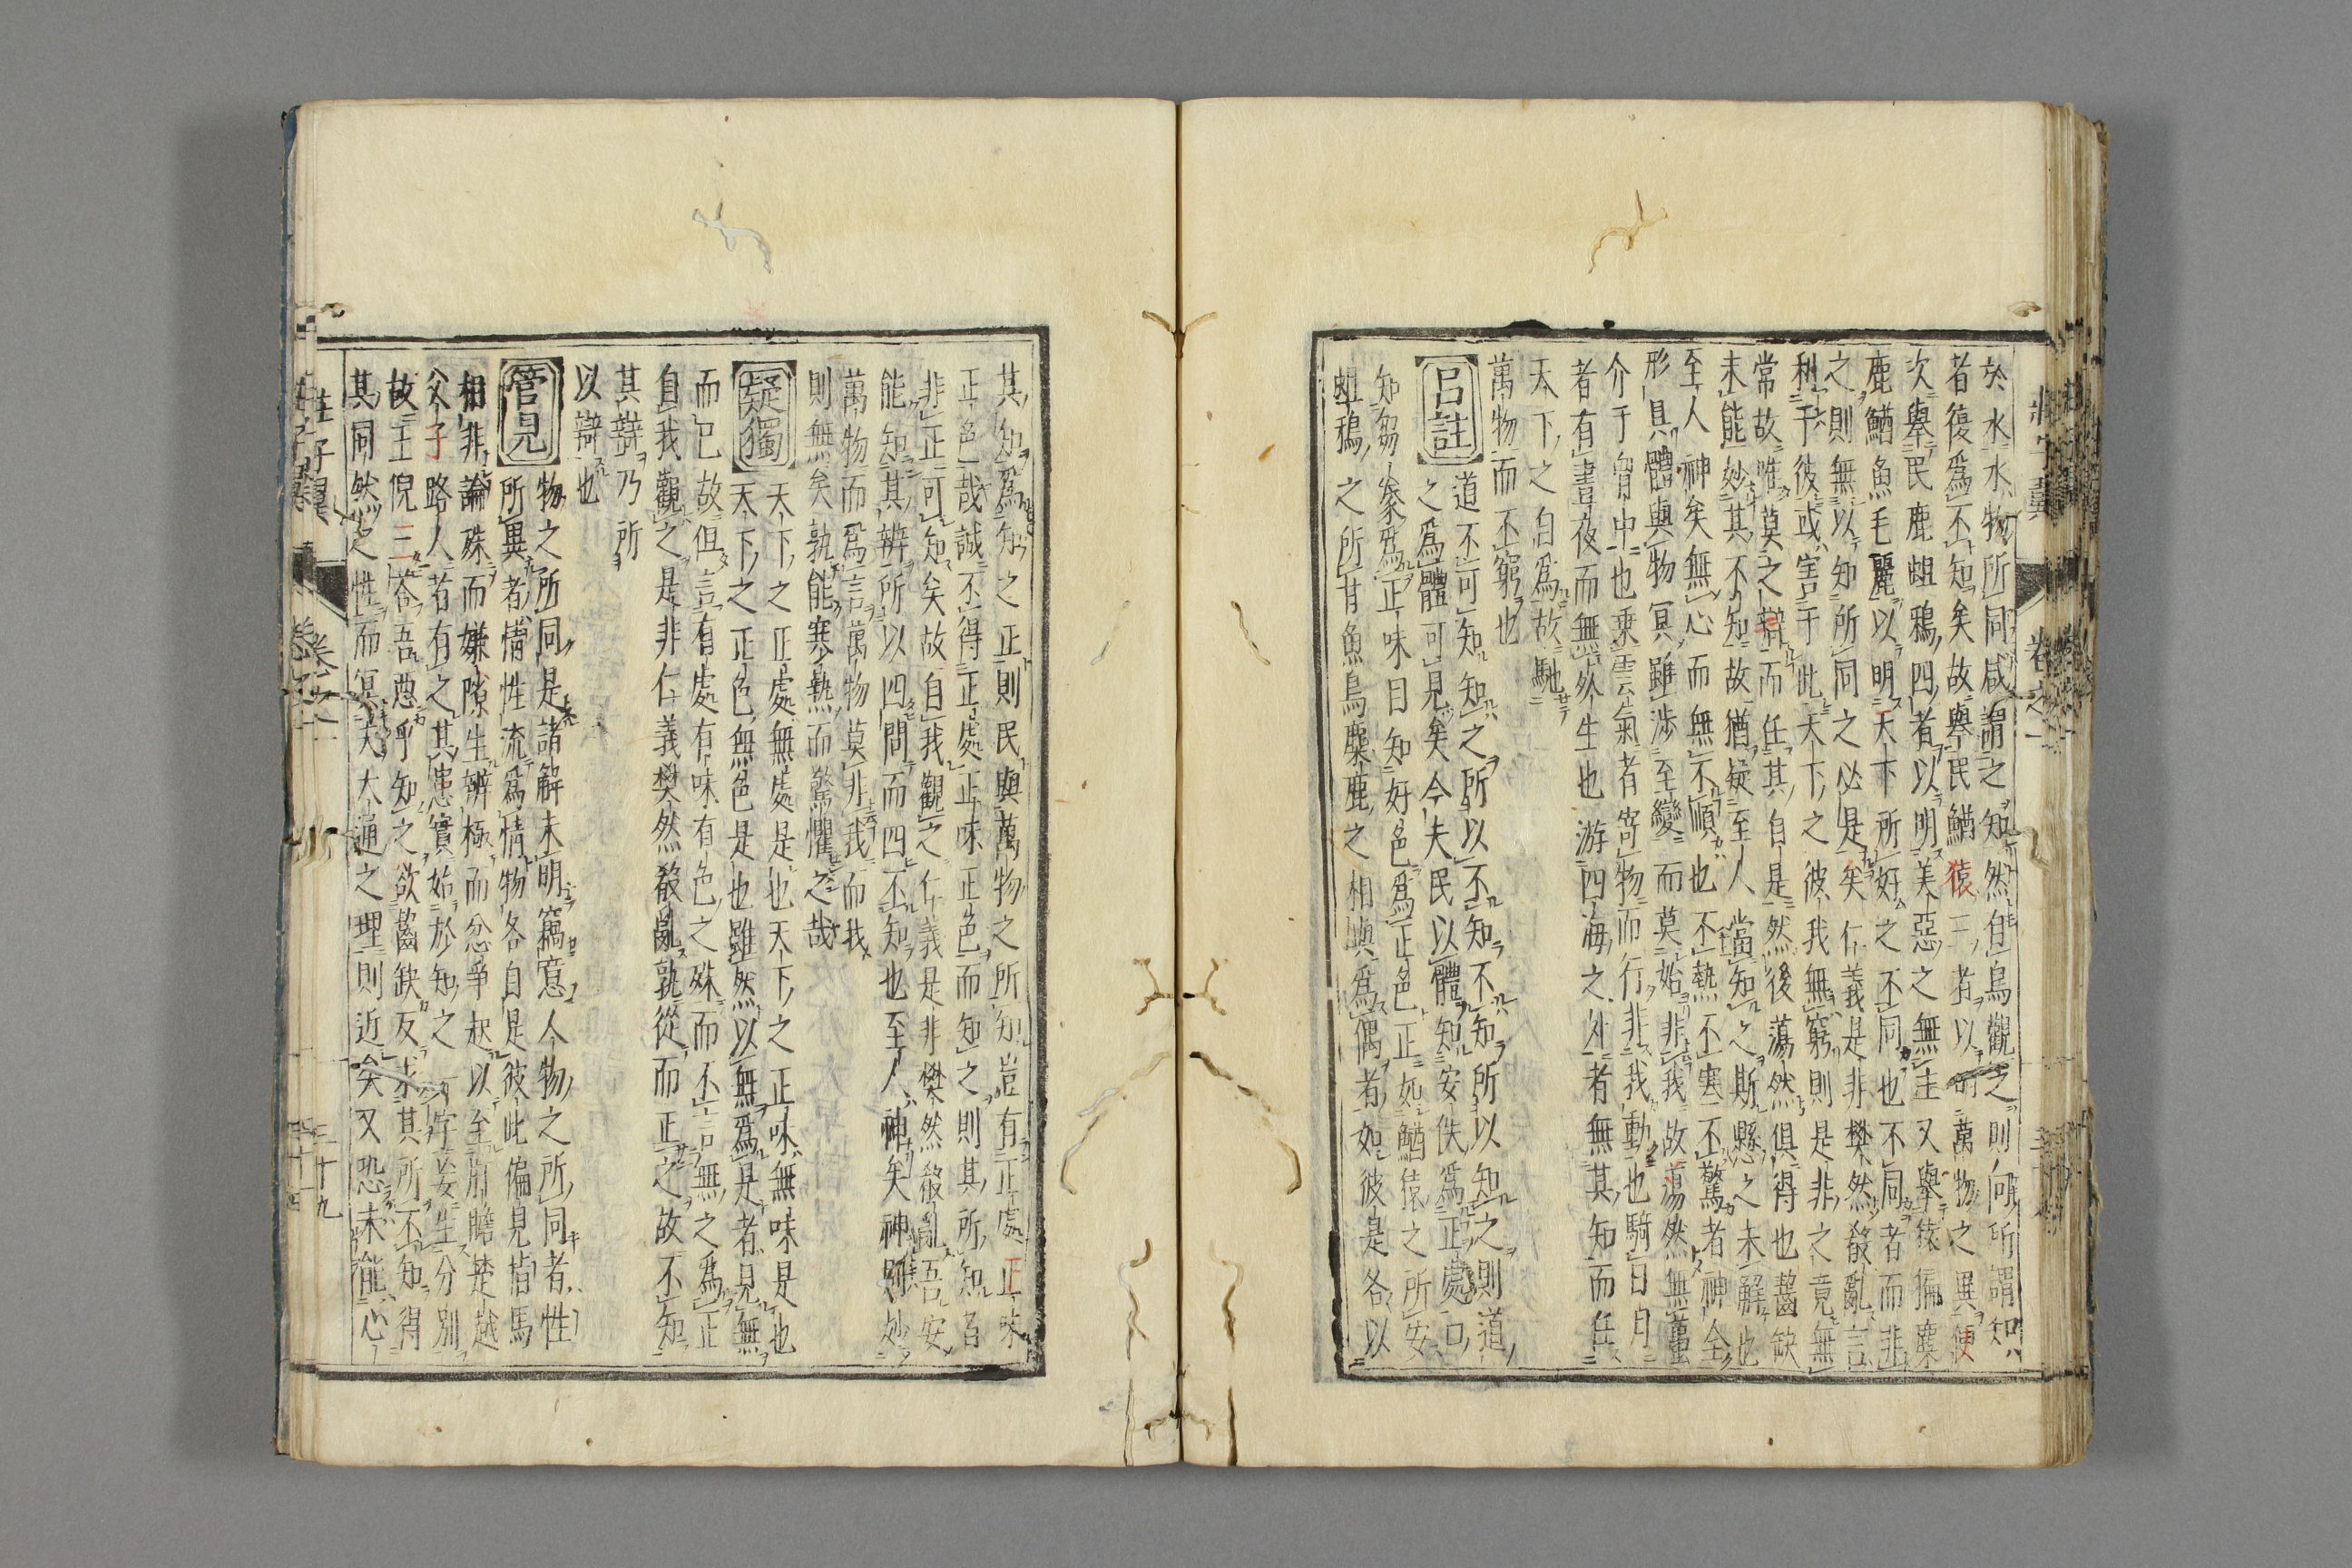 於水水物所同咸謂之知然自鳥觀之則向所謂知
者復爲不知矣故舉民鰌猿三者以明萬物之異便
次舉民鹿蛆鴉四者以明美惡之無主又舉猿猵麋
鹿鰌魚毛麗以明天下所好之不同也不同者而非
之則無以知所同之必是矣仁義是非樊然殽亂言
利于彼或害于此天下之彼我無窮則是非之竟無
常故唯莫之辯而任其自是然後蕩然俱得也齧缺
未能妙其不知故猶疑至人當知之斯懸之未解也
至人神矣無心而無不順也不熱不寒不驚者神全
形具體與物冥雖涉至變而莫始非我故蕩然無蠆
介于胷中也乘雲氣者寄物而行非我動也騎日月
者有晝夜而無死生也游四海之外者無其知而任
天下之自爲故馳
萬物而不窮也
呂註
道不可知知之所以不知不知所以知之則道
之爲體可見矣今夫民以體知安佚爲正處口
知芻豢爲正味目知好色爲正色正如鰌猿之所安
蛆鴉之所甘魚鳥麋鹿之相與爲偶者如彼是各以
莊子翼 卷之一
其知爲知之正則民與萬物之所知豈有正處正味
正色哉誠不得正處正味正色而知之則其所知者
非正可知矣故自我觀之仁義是非樊然殽亂吾安
能知其辨所以四問而四不知也至人神矣神雖妙
萬物而爲言萬物莫非我而我
則無矣孰能寒熱而驚懼之哉
疑獨
天下之正處無處是也天下之正味無味是也
天下之正色無色是也雖然以無爲是者見無
而已故但言有處有味有色之殊而不言無之爲正
自我觀之是非仁義樊然殽亂孰從而正之故不知
其辯乃所
以辯也
管見
物之所同是諸解未明竊意人物之所同者性
所異者情性流爲情物各自是彼此偏見指馬
相非論殊而嫌隙生辨極而忿爭起以至肝膽楚越
父子路人者有之其患實始於知之一字妄生分別
故王倪三答吾惡乎知之欲齧缺反求其所不知得
其同然之性而冥夫大通之理則近矣又恐未能心
莊子翼 卷之一 三十九